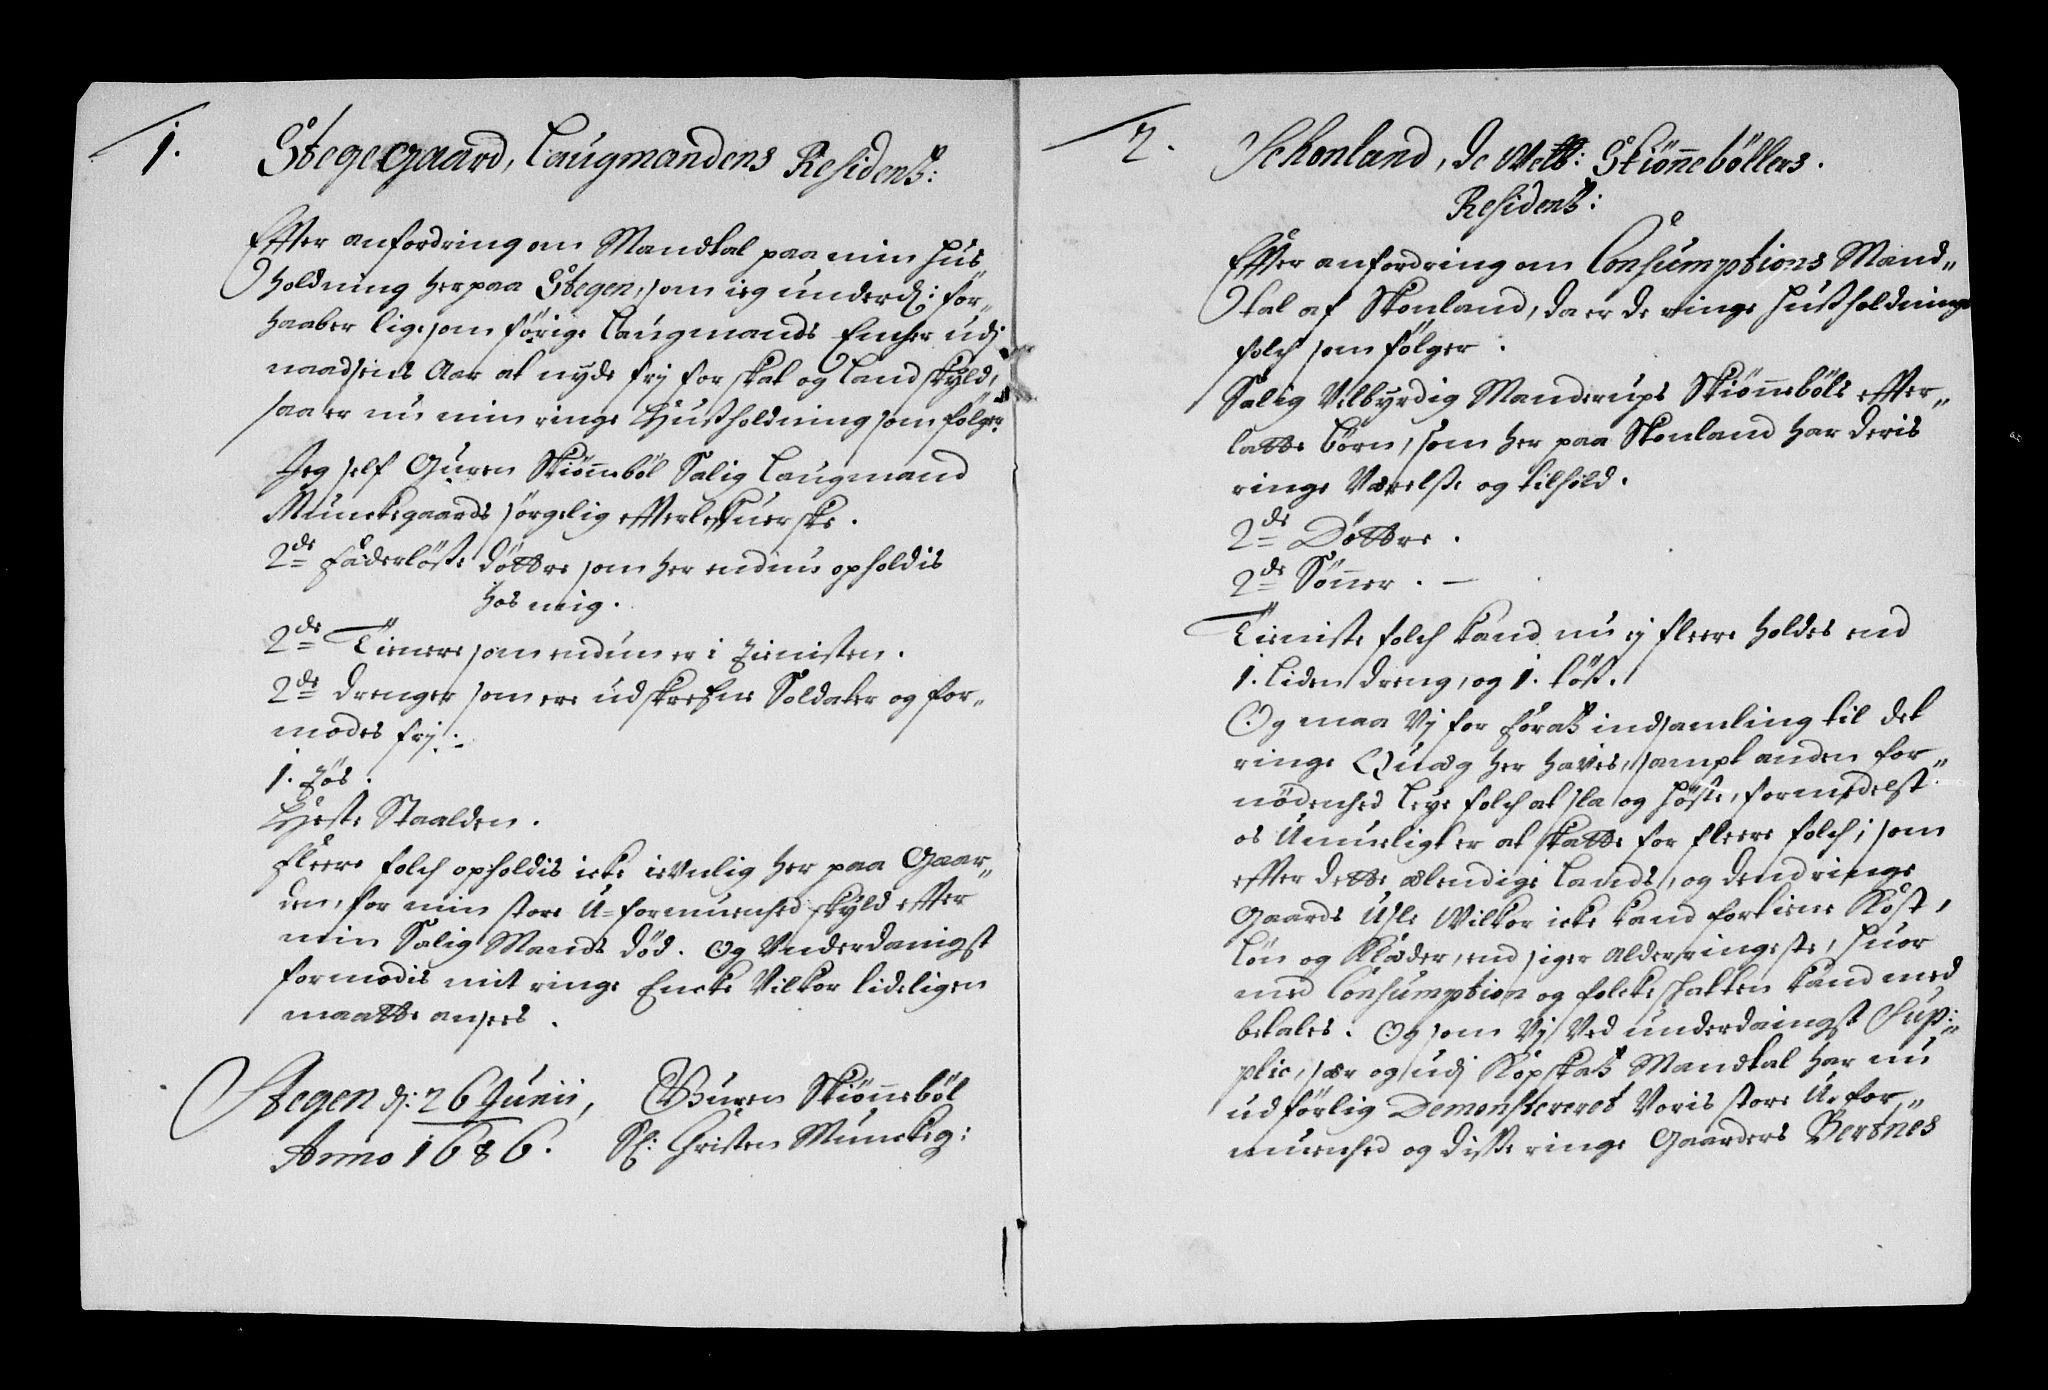 1.
Stegegaard, Laugmandens Residentz:
Effter anfordring om Mandtal paa min Huus
holdning her paa Stegen, som ieg underd: for„
haaber lige som förige Laugmands Encher udj
naadsens Aar at nyde frj for skat og Landskyld,
saa er nu min ringe Huusholdning som fölger.
Jeg self Guren Skiönneböl Salig Laugmand
Munckegaards sörgelig effterleffuerske.
2de faderlöse döttre som her endnu opholdis
hos mig.
2de Tienere som endnu er i tienisten.
2de drenger som ere udskrefne Soldater og for„
modes frj:
1. tös.
Heste Staalden.
fleere folch opholdis icke ievnlig her paa Gaar„
den, for min store U-formuenhed skyld effter
min Salig Mands död. Og Vnderdanigst
formodis mit ringe Encke Vilkor lideligen
maatte ansees.
Stegen d: 26 Junii, Guren Skiönneböl
Anno 1686. Sl: Christen Munckeg:
2.
Schonland, de Welb: Skiönneböllers.
Residentz:
Effter anfordring om Consumptions Mand„
tal af Skonland, da er de ringe Husholdnings
folch som fölger:
Salig Velbyrdig Manderups Skiönneböls effter„
latte börn, som her paa Skonland har deris
ringe Værelse og tilhold.
2de Döttre.
2de Sönner. —
Tieniste folch kand nu ej fleere holdes end
1. liden dreng, og 1. töß.
Og maa Vj for foratz indsamling til det
ringe Quæg her haves, sampt anden for„
nödenhed leye folch at sla og höste, formedelst
os Umueligt er at skatte for fleere folch; som
effter dette elendige Lands, og dend ringe
Gaards Usle Wilkor icke kand fortiene Kost,
Lön og Klæder, end siger alderringeste, huor
med Consumption og folckeschatten kand med
betales. Og som Vj Ved underdaingst Sup:„
plic, sær og udj Kopskatz Mandtal har nu
udförlig Demonstereret Voris store U-for„
muenhed og disse ringe Gaarders